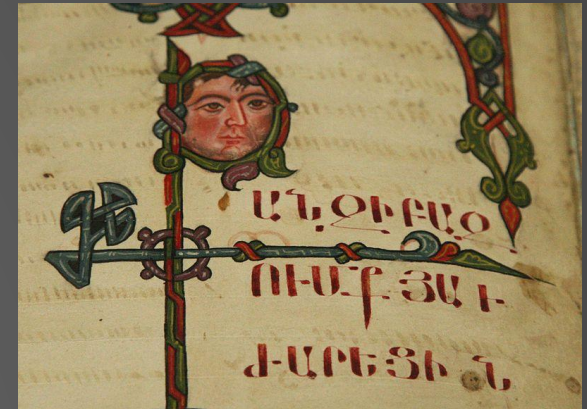 ՔԱՆԶԻ ԲԱԶ
ՈՒՄՔ ՅԱՒ
ԺԱՐԵՑԻՆ